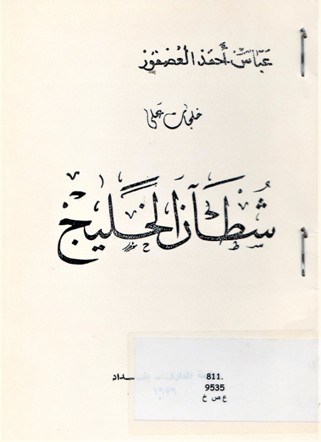 عباس أحمد العصفور
خلجات على
شطآن الخليج
811.
9535
ع ص خ